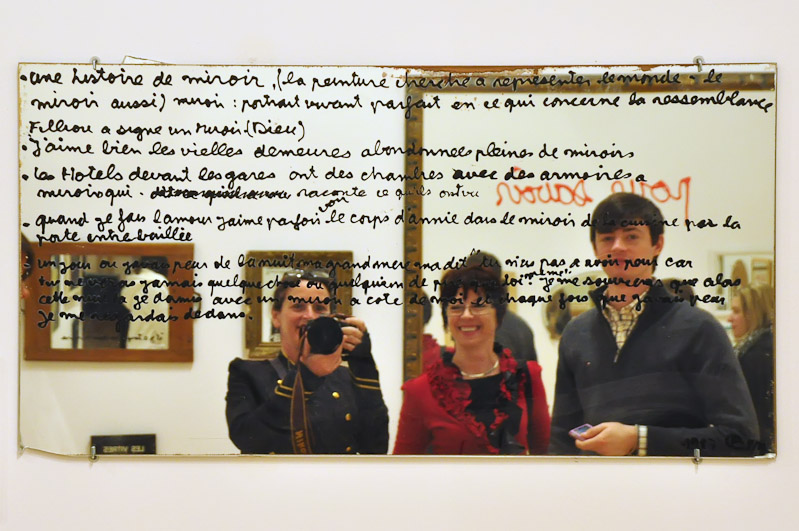 . une histoire de miroir, (la peinture cherche a representer le monde - le
miroir aussi) miroir : portrait vivant parfait en ce qui concerne la ressemblance
Filliou a signe un miroir (Dieu)
. J'aime bien les vielles demeures abandonnees pleines de miroirs
. Les Hotels devant les gares ont des chambres avec des armoires a
miroir qui - raconte ce qu'ils ont vu
. quand je fais l'amour j'aime parfois voir le corps d'annie dans le miroir de la cuisine par la
porte entre baillée
un jour ou j'avais peur de la nuit ma grand mere m'a dit "tu n'as pas a avoir peur car
tu ne verras jamais quelque chose ou quelqu'un de pire que toi même" je me souviens que alors
cette nuit la je dormis avec un miroir a cote de moi et chaque fois que j'avais peur
je me regardais dedans.
pour savoir
LES VITRES